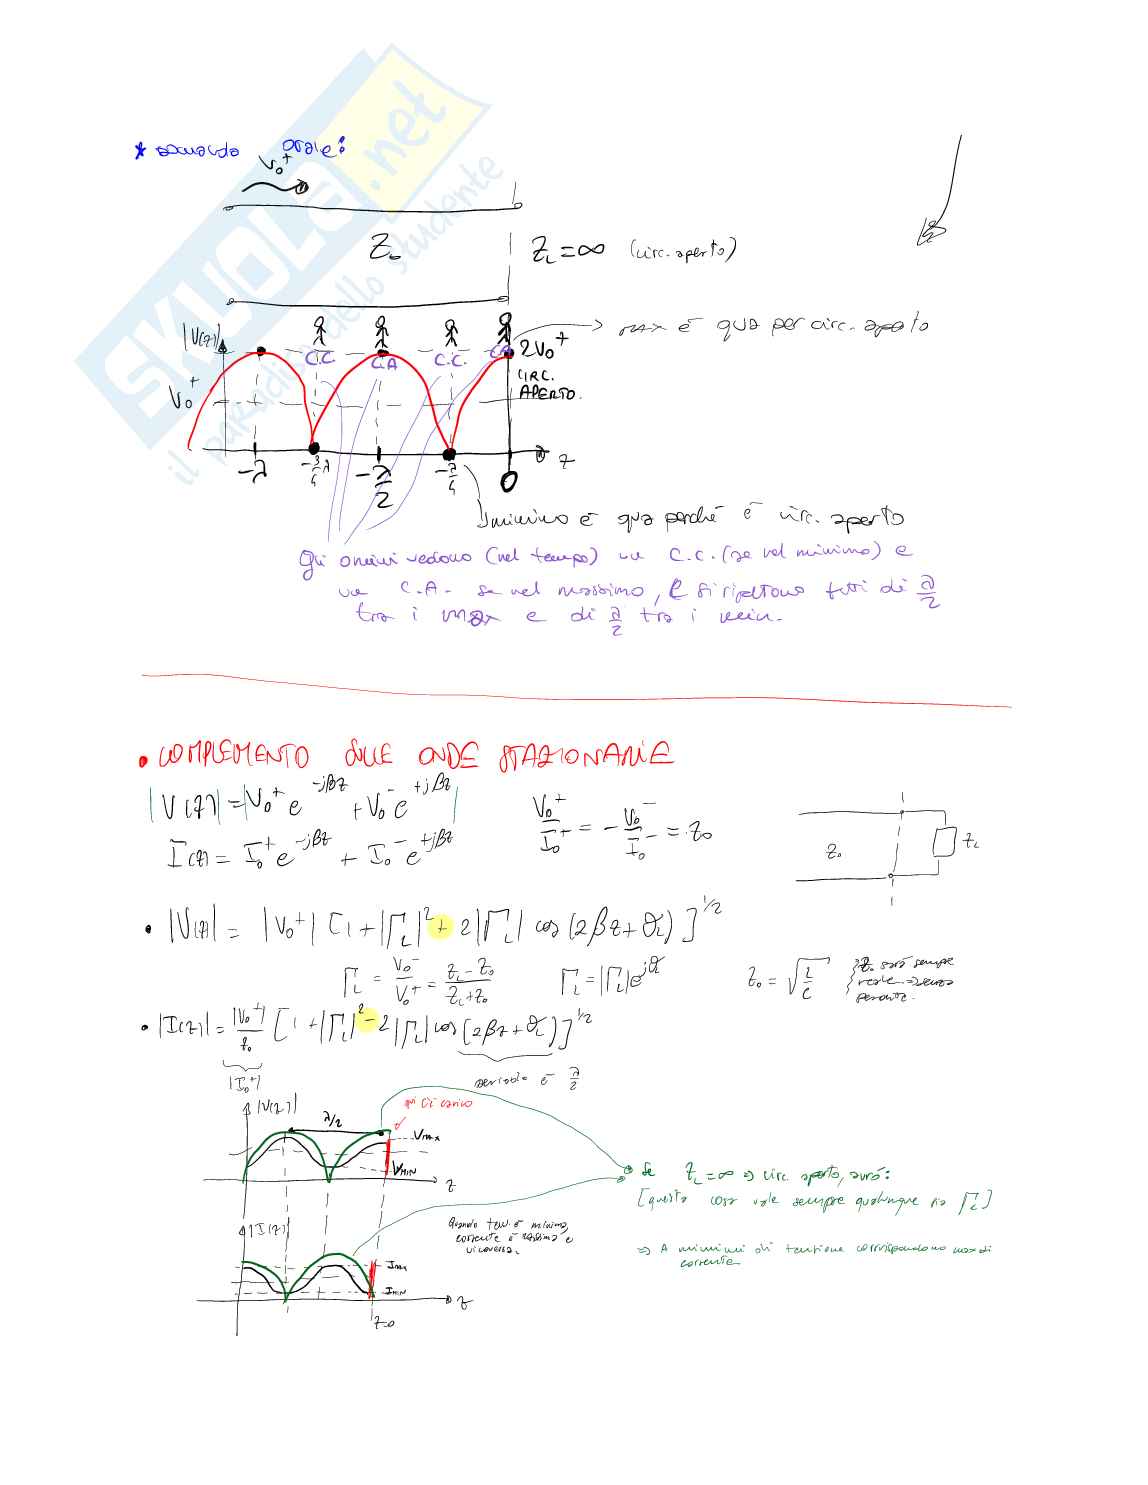 SKUOLA.net
il paradiso dello studente
* domanda orale:
V₀⁺
Z₀
Z_L = ∞ (circ. aperto)
|V(z)|
C.C.
C.A
C.C.
CA
2V₀⁺
→ max è qua per circ. aperto
CIRC.
APERTO.
V₀⁺
-λ
-3/4 λ
-λ/2
-λ/4
0
z
minimo è qua perché è circ. aperto
Gli omini vedono (nel tempo) un C.C. (se nel minimo) e
un C.A. se nel massimo, e si ripetono tutti di λ/2
tra i max e di λ/2 tra i min.
• COMPLEMENTO SULLE ONDE STAZIONARIE
|V(z)| = |V₀⁺ e^{-jβz} + V₀⁻ e^{+jβz}|
V₀⁺/I₀⁺ = - V₀⁻/I₀⁻ = Z₀
I(z) = I₀⁺ e^{-jβz} + I₀⁻ e^{+jβz}
Z₀
Z_L
• |V(z)| = |V₀⁺| [1 + |Γ_L|² + 2|Γ_L| cos(2βz + θ_L)]^{1/2}
Γ_L = V₀⁻/V₀⁺ = (Z_L - Z₀)/(Z_L + Z₀)
Γ_L = |Γ_L| e^{jθ_L}
Z₀ = √(L/C)
Z₀ sarà sempre
reale senza
perdite.
• |I(z)| = |V₀⁺|/Z₀ [1 + |Γ_L|² - 2|Γ_L| cos(2βz + θ_L)]^{1/2}
|I₀⁺|
periodo è λ/2
|V(z)|
λ/2
qui c'è carico
V_MAX
V_MIN
z
• Se Z_L = ∞ ⇒ circ. aperto, avrò:
[questa cosa vale sempre qualunque sia Γ_L]
|I(z)|
Quando tens. è minima,
corrente è massima e
viceversa.
⇒ A minimi di tensione corrispondono max di
corrente
I_MAX
I_MIN
z
z=0